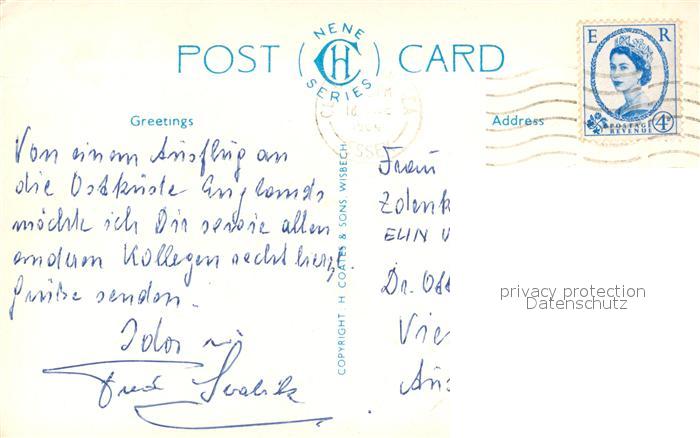 POST CARD
NENE
CH
SERIES
E R
POSTAGE
REVENUE
4D
Greetings
Address
ESSEX
Von einem Ausflug an
die Ostküste Englands
möchte ich Dir sowie allen
anderen Kollegen recht herzl.
Grüße senden.
Fred
COPYRIGHT H COATES & SONS WISBECH
Frau
Zdenk
ELIN
Dr. Ott
Vie
Aus
privacy protection
Datenschutz